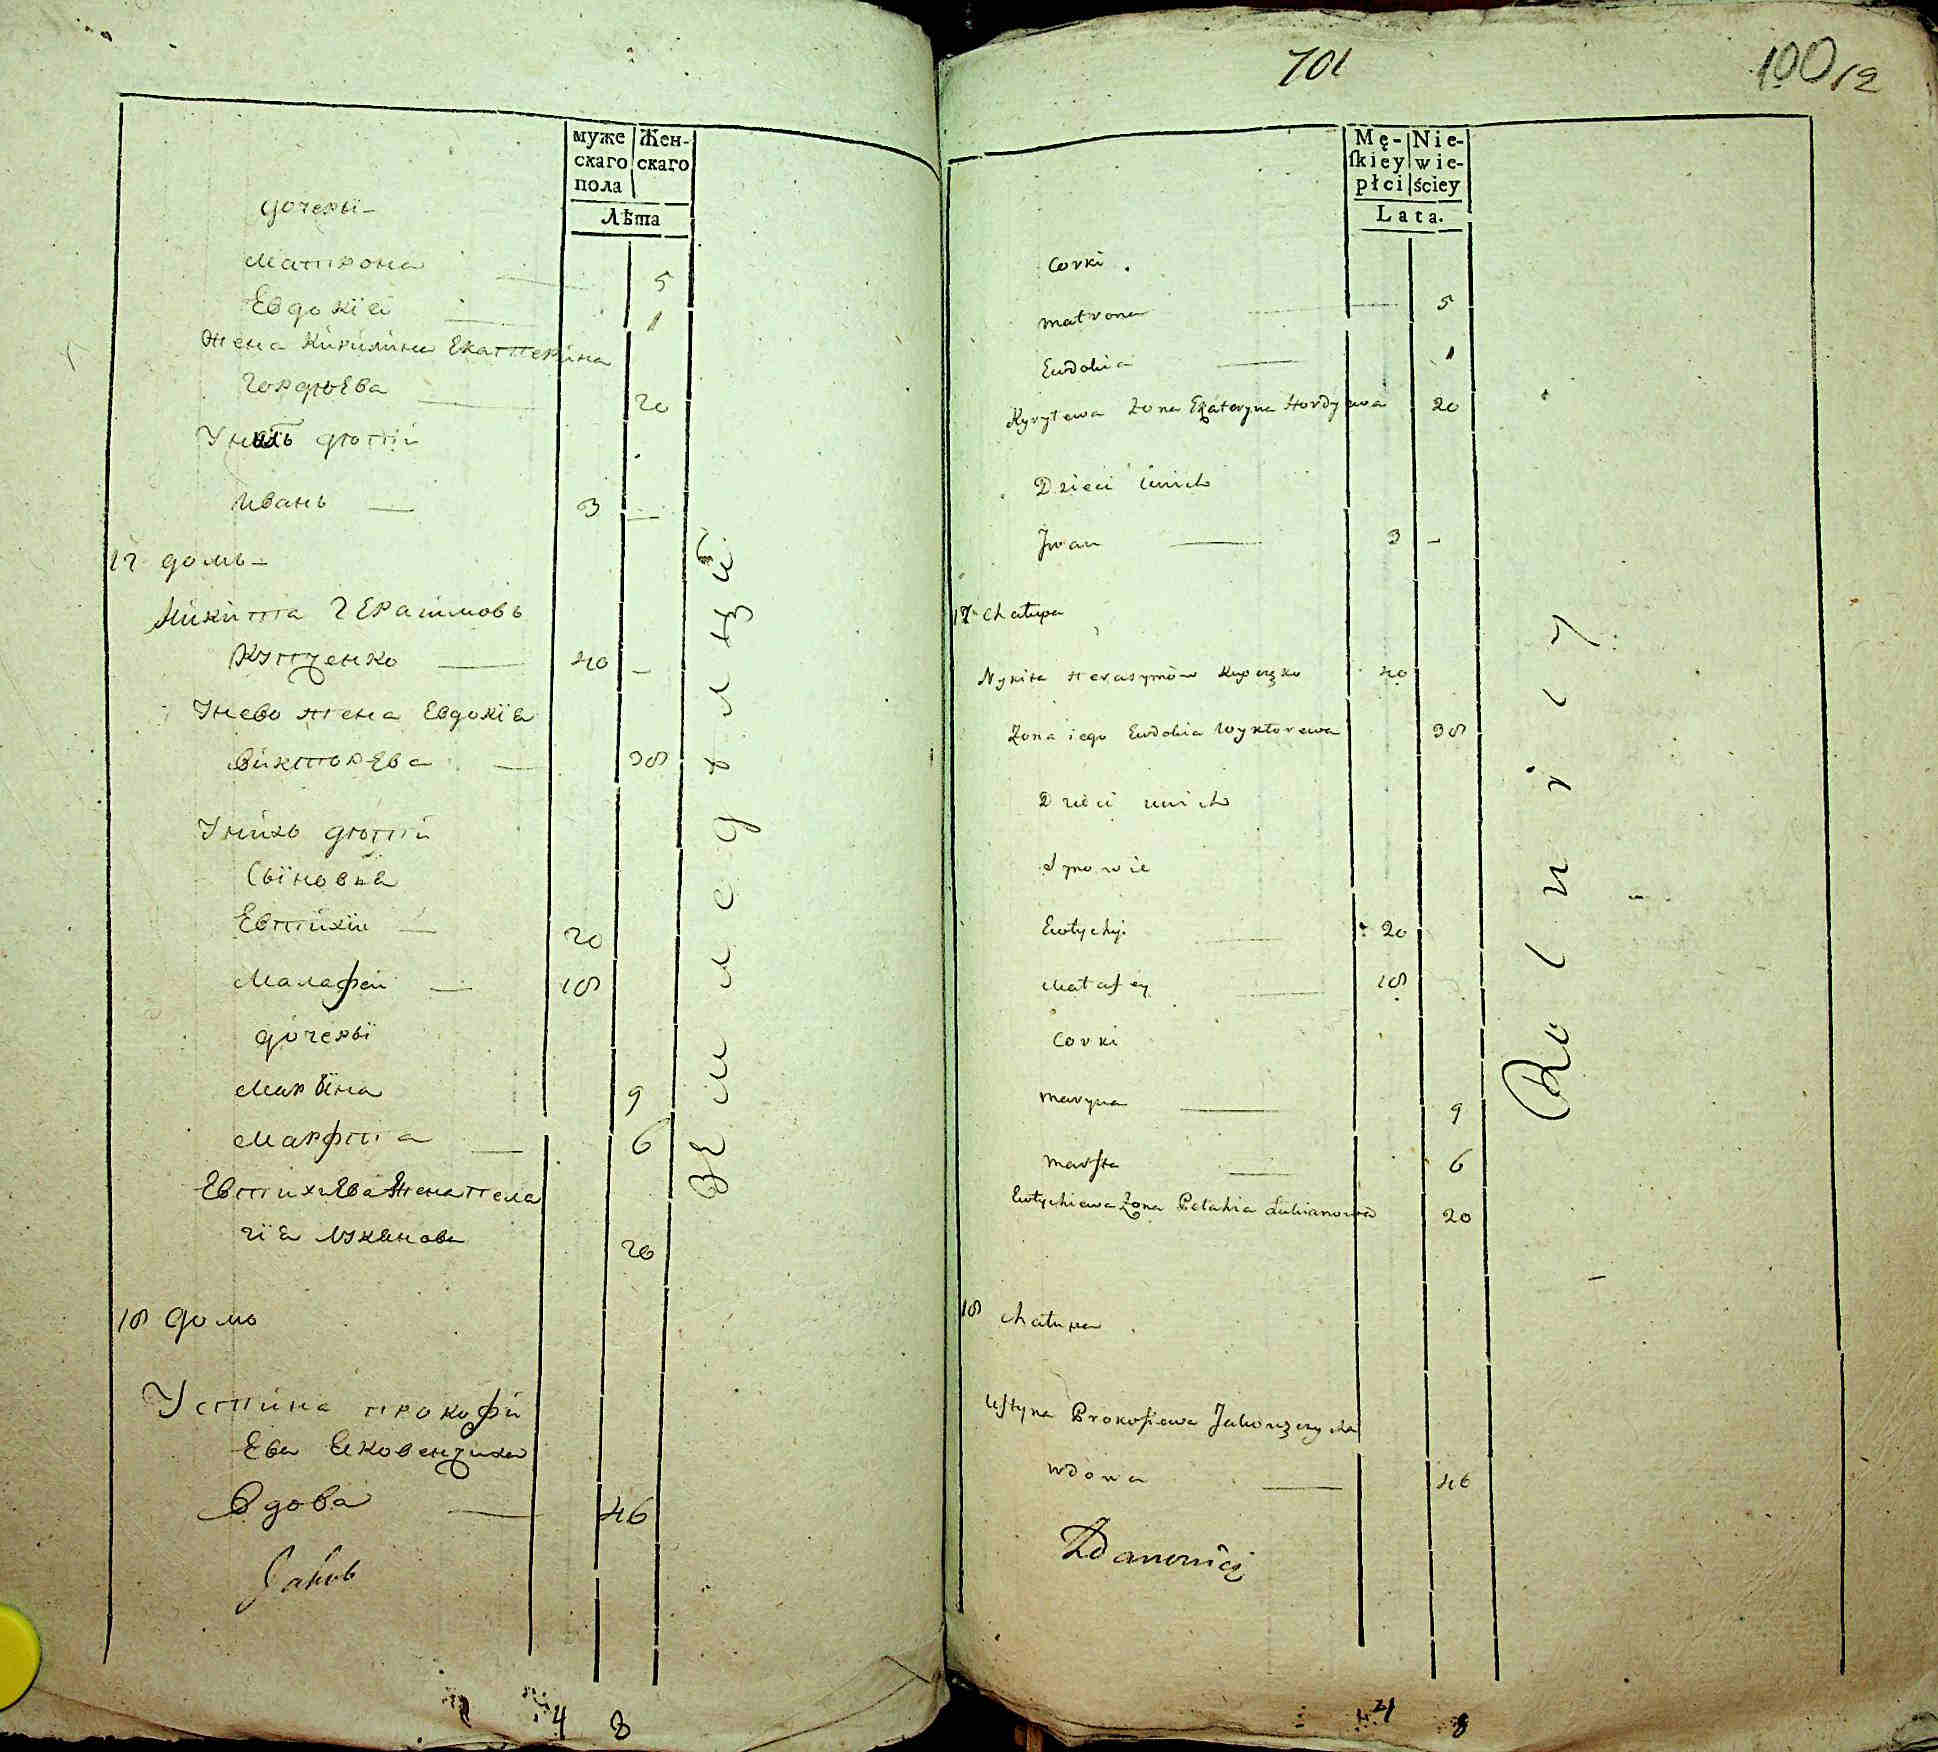 муже
скаго
пола
Жен-
скаго
Лѣта
дочеры
Матрона 5
Евдокїя 1
Жена Кирилина Екатерина
Гордѣева 20
Унихъ дѣти
Иванъ 3 –
17 домъ
Никита Герасимовъ
Купченко 40 –
Унево жена Евдокїя
Викторева 38
Унихъ дѣти
Сыновья
Евтихїи 20
Малафеи 18
дочеры
Марина 9
Марфта 6
Евтихиева Жена Пела
гїя Лукянова 20
18 домъ
Устина Прокофи
ева Яковенчиха
Вдова 46
Jakub
Землед
4 8
701
100 12
Mę-
skiey
płci
Nie-
wie-
ściey
Lata.
Corki
Matrona 5
Eudokia 1
Kyryłowa Zona Ekateryna Hordyewa 20
Dzieci unich
Jwan 3 –
17 chałupa
Nykita Herasymów Kupczko 40
Zona iego Eudokia Wyktorewa 38
Dzieci unich
Synowie
Ewtychyi 20
Małafiey 18
Corki
Maryna 9
Marfta 6
Ewtychiewa Zona Pelahia Łukianowa 20
18 chałupa
Ustyna Prokofiewa Jakowczycha
wdowa 46
Zdanowicz
Rolnicy
4 8